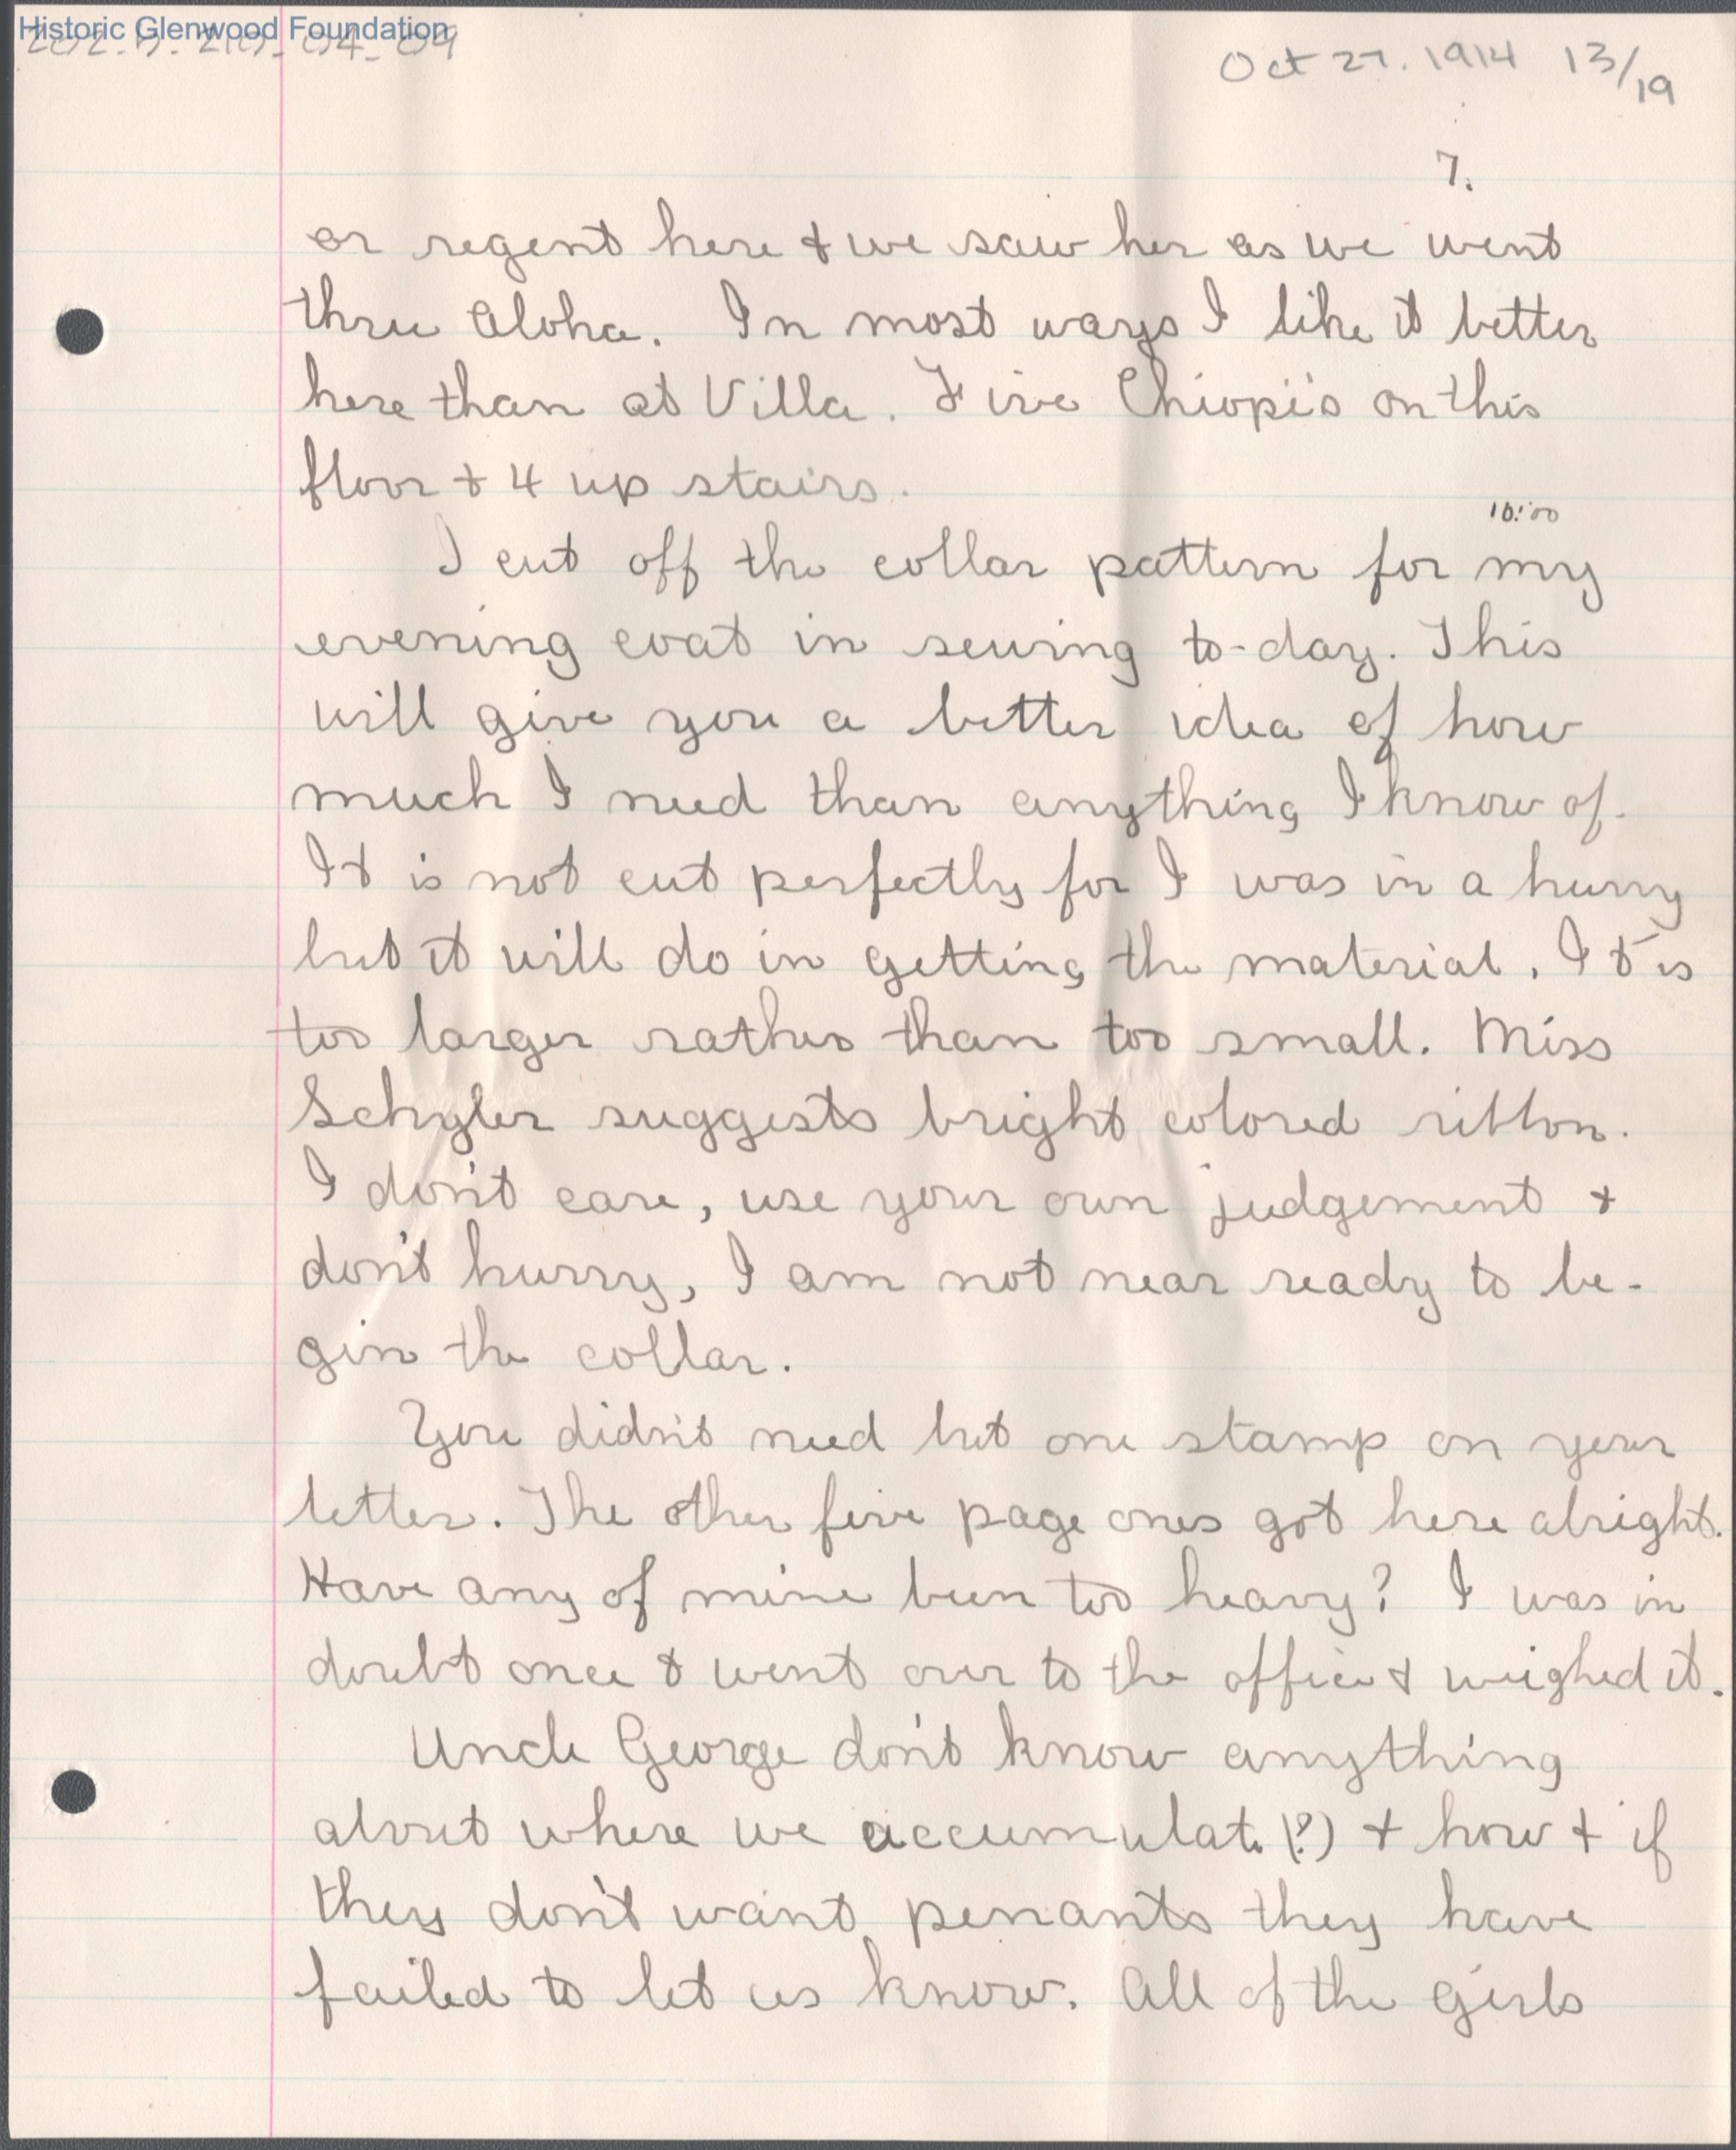 Historic Glenwood Foundation
Oct 27. 1914 13/19
7.
or regent here & we saw her as we went
thru Aloha. In most ways I like it better
here than at Villa. Five Chiopi's on this
floor & 4 up stairs.
10:00
I cut off the collar pattern for my
evening coat in sewing to-day. This
will give you a better idea of how
much I need than anything I know of.
It is not cut perfectly for I was in a hurry
but it will do in getting the material. It is
too larger rather than too small. Miss
Schyler suggests bright colored ribbon.
I don't care, use your own judgement &
don't hurry, I am not near ready to be-
gin the collar.
You didn't need but one stamp on your
letter. The other five page ones got here alright.
Have any of mine been too heavy? I was in
doubt once & went over to the office & weighed it.
Uncle George don't know anything
about where we accumulate (?) & how & if
they don't want penants they have
failed to let us know. All of the girls